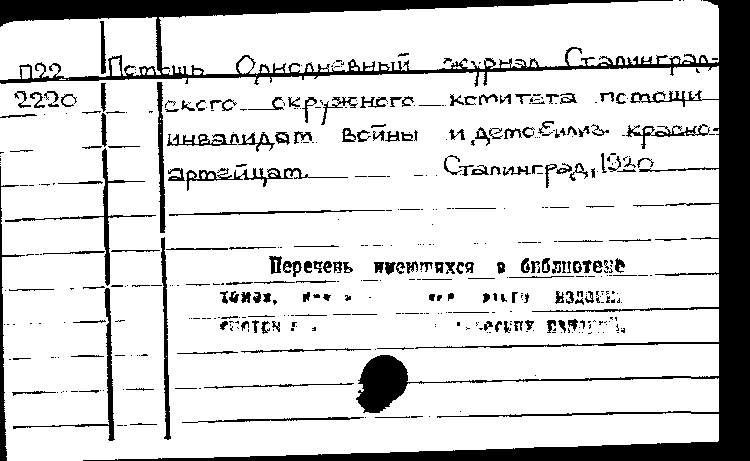 П22 Помощь Однодневный журнал Сталинград-
2220 ского окружного комитета помощи
инвалидам войны и демобилиз. красно-
артейцам. Сталинград, 1920
Перечень имеющихся в библиотеке
томах, этого издания
смотри издания.